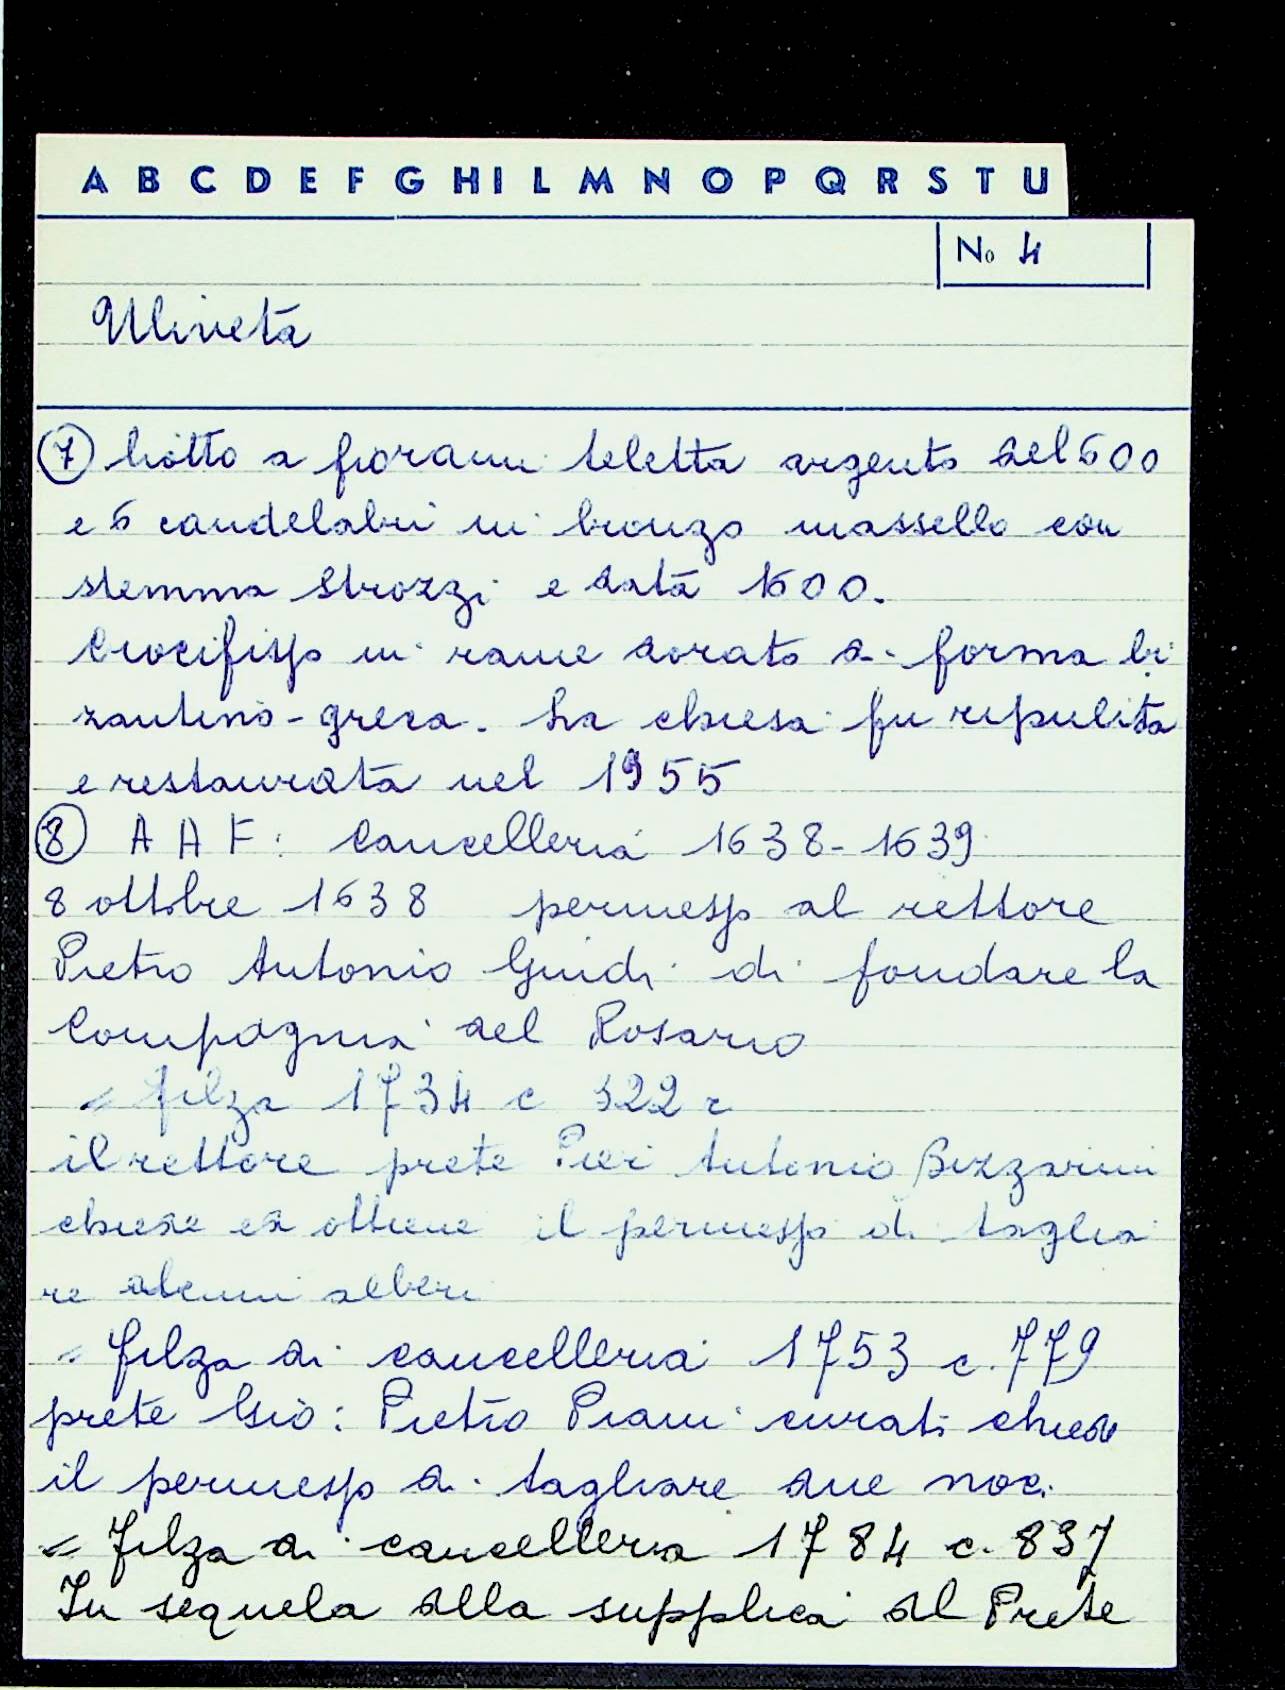 A B C D E F G H I L M N O P Q R S T U
No 4
Uliveta
7 liotto a fiorami teletta argento del 600
e 6 candelabri in bronzo massello con
stemma Strozzi e data 1600.
Crocifisso in rame dorato di forma bi
zantino-greca. La chiesa fu ripulita
e restaurata nel 1955
8 A A F: Cancelleria 1638-1639
8 ottobre 1638 permesso al rettore
Pietro Antonio Guidi di fondare la
Compagnia del Rosario
= filza 1734 c 322 r
il rettore prete Pier Antonio Bizzarini
chiede ed ottiene il permesso di taglia
re alcuni alberi
= filza di cancelleria 1753 c. 779
prete Gio: Pietro Piani curato chiede
il permesso di tagliare due noci
= Filza di cancelleria 1784 c. 837
In sequela alla supplica del Prete